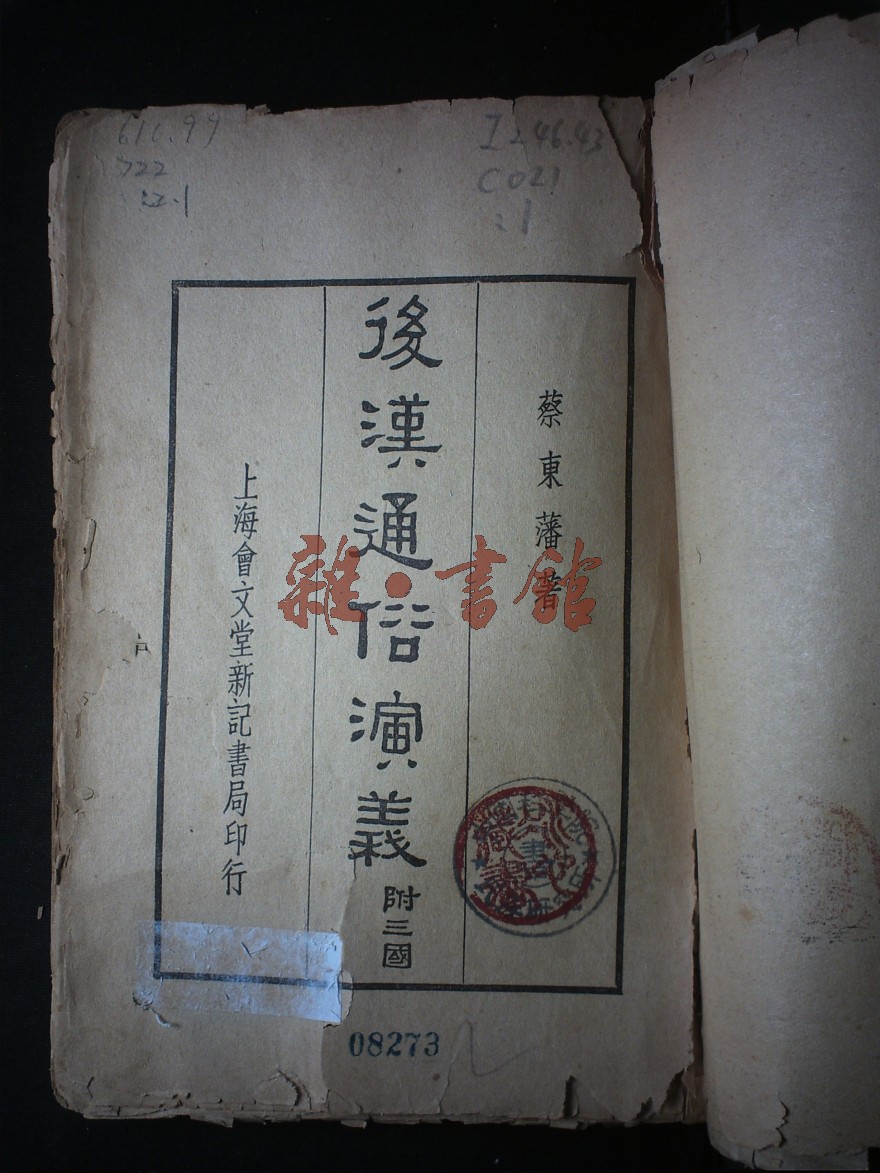 610.99
722
:2.1
I246.43
C021
:1
蔡東藩著
後漢通俗演義
附三國
上海會文堂新記書局印行
雜·書館
08273